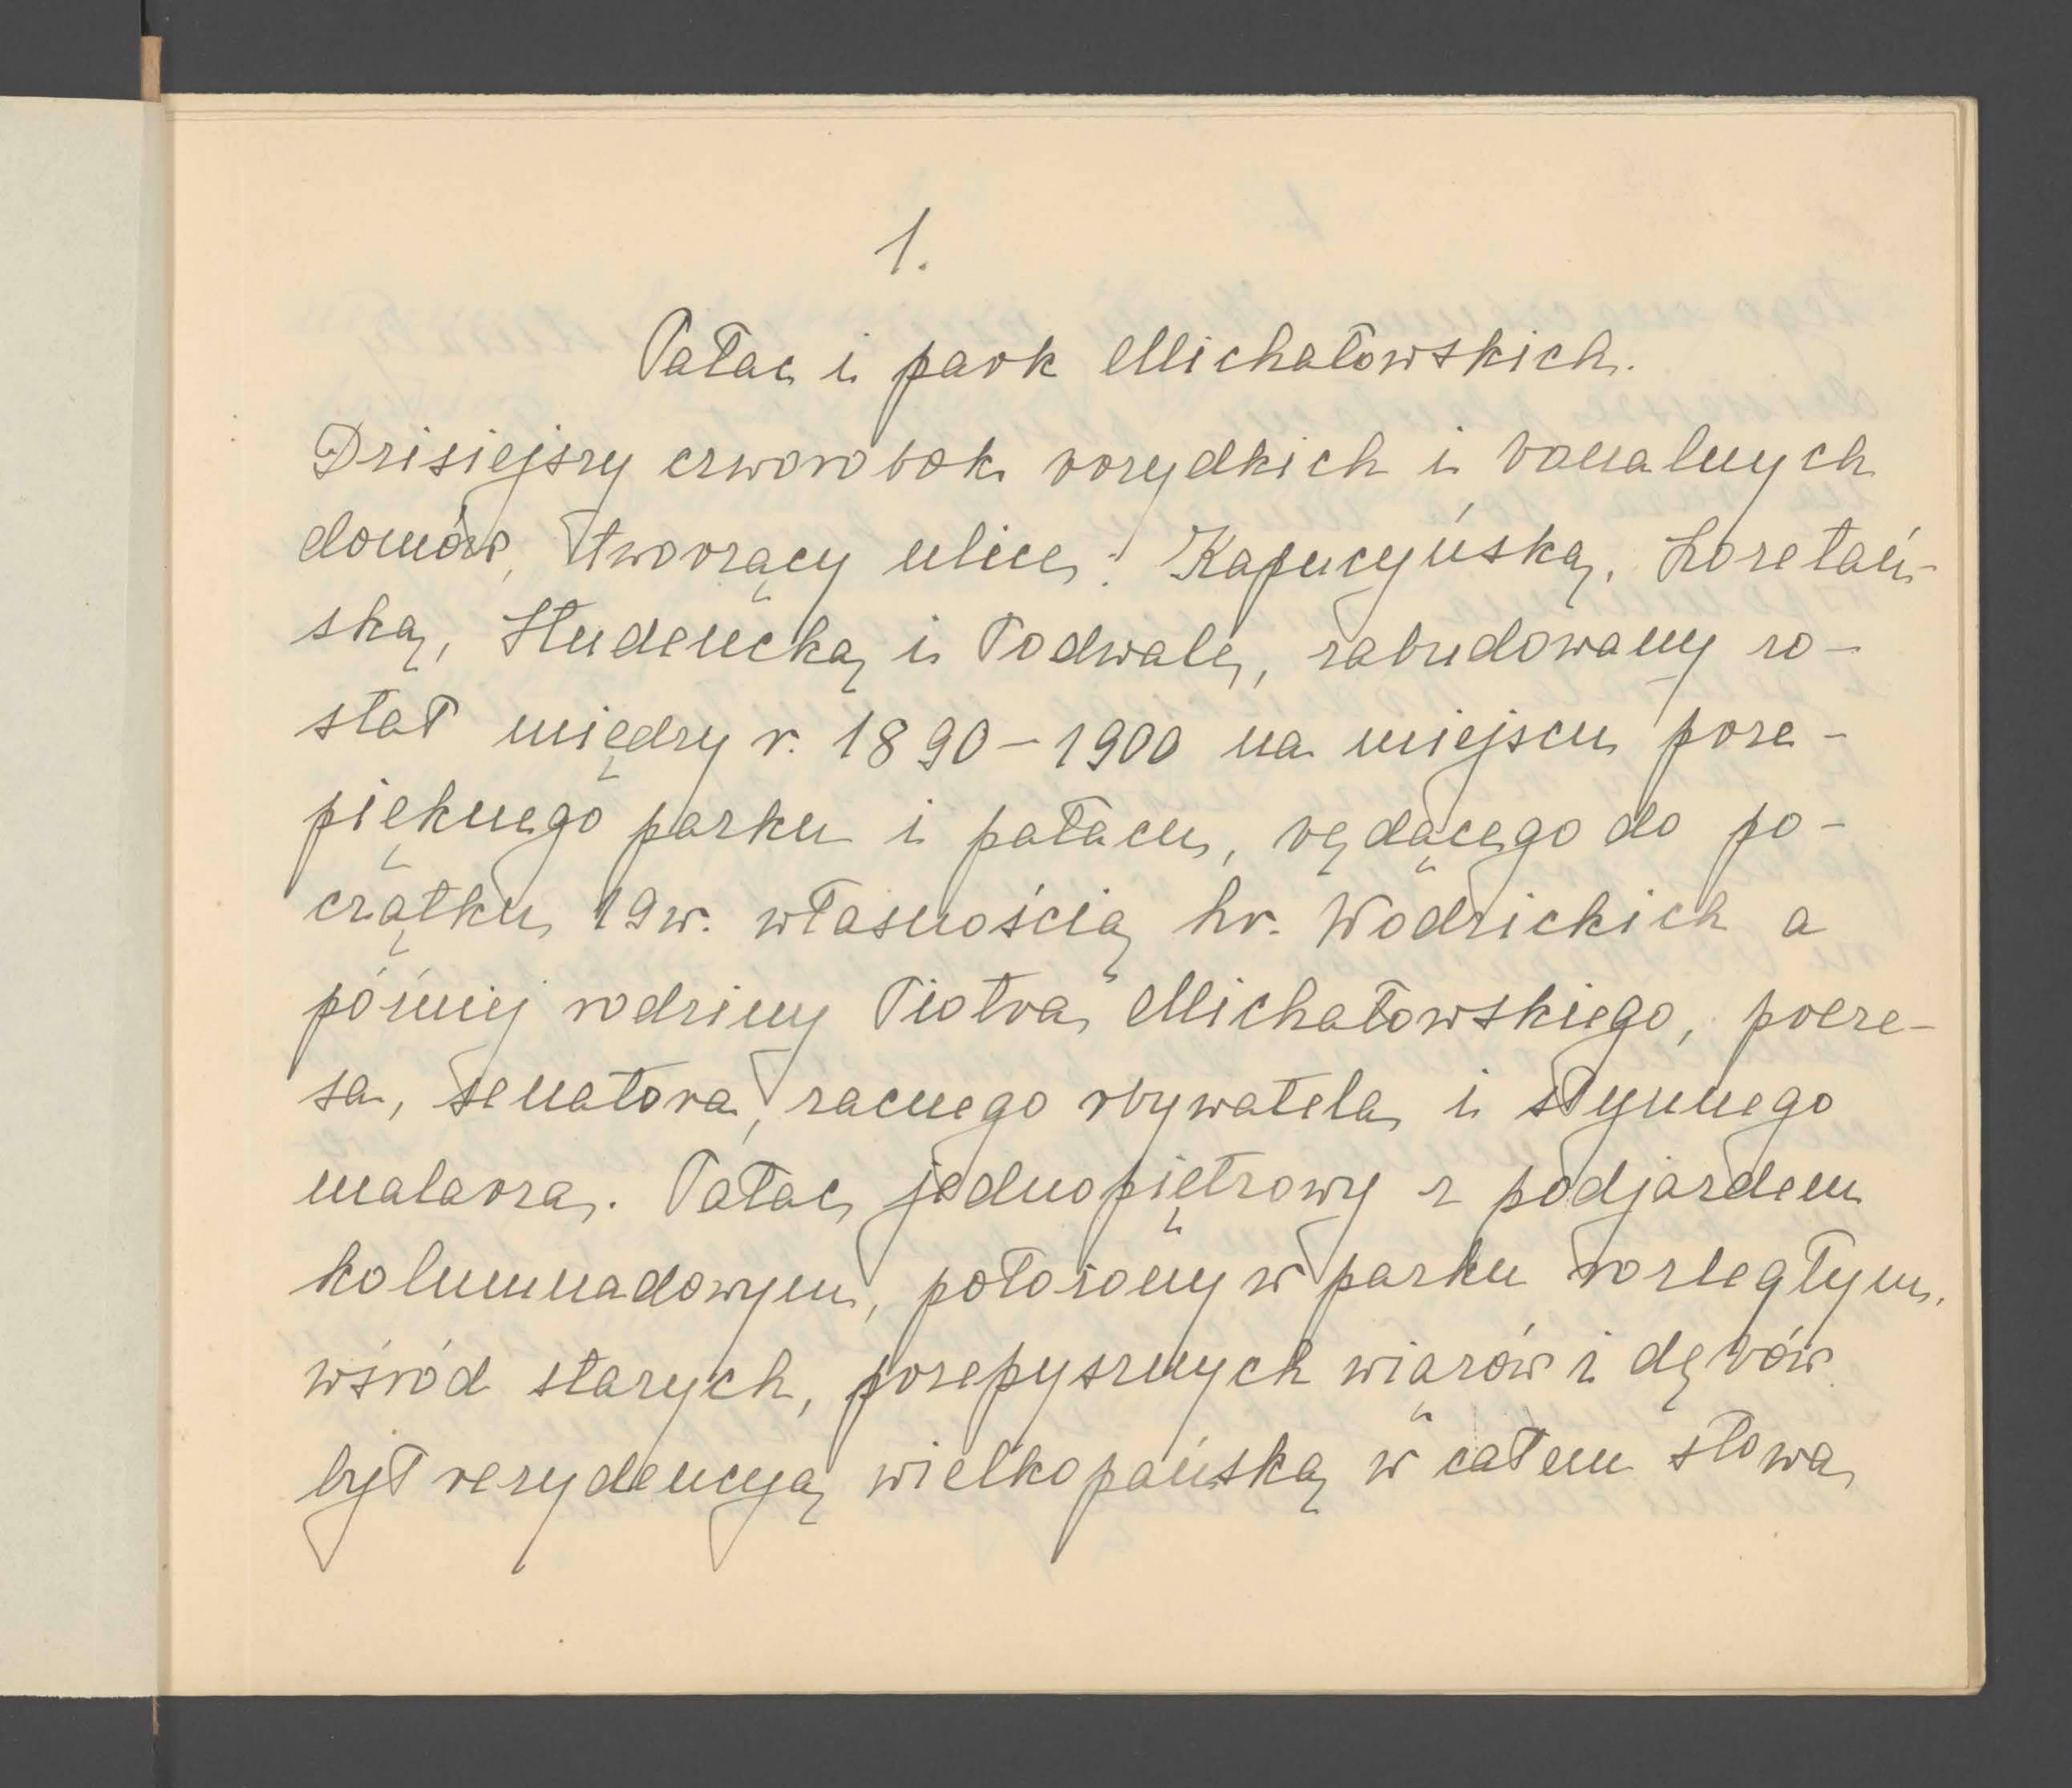 1.
Pałac i park Michałowskich.
Dzisiejszy czworobok brzydkich i banalnych
domów, tworzący ulice: Kapucyńską, Loretań-
ską, Studencką i Podwale, zabudowany zo-
stał między r. 1890-1900 na miejscu prze-
pięknego parku i pałacu, będącego do po-
czątku 19 w. własnością hr. Wodzickich a
później rodziny Piotra Michałowskiego, preze-
sa, senatora, zacnego obywatela i słynnego
malarza. Pałac jednopiętrowy z podjazdem
kolumnadowym, położony w parku rozległym,
wśród starych, przepysznych wiązów i dębów
był rezydencyą wielkopańską w całem słowa